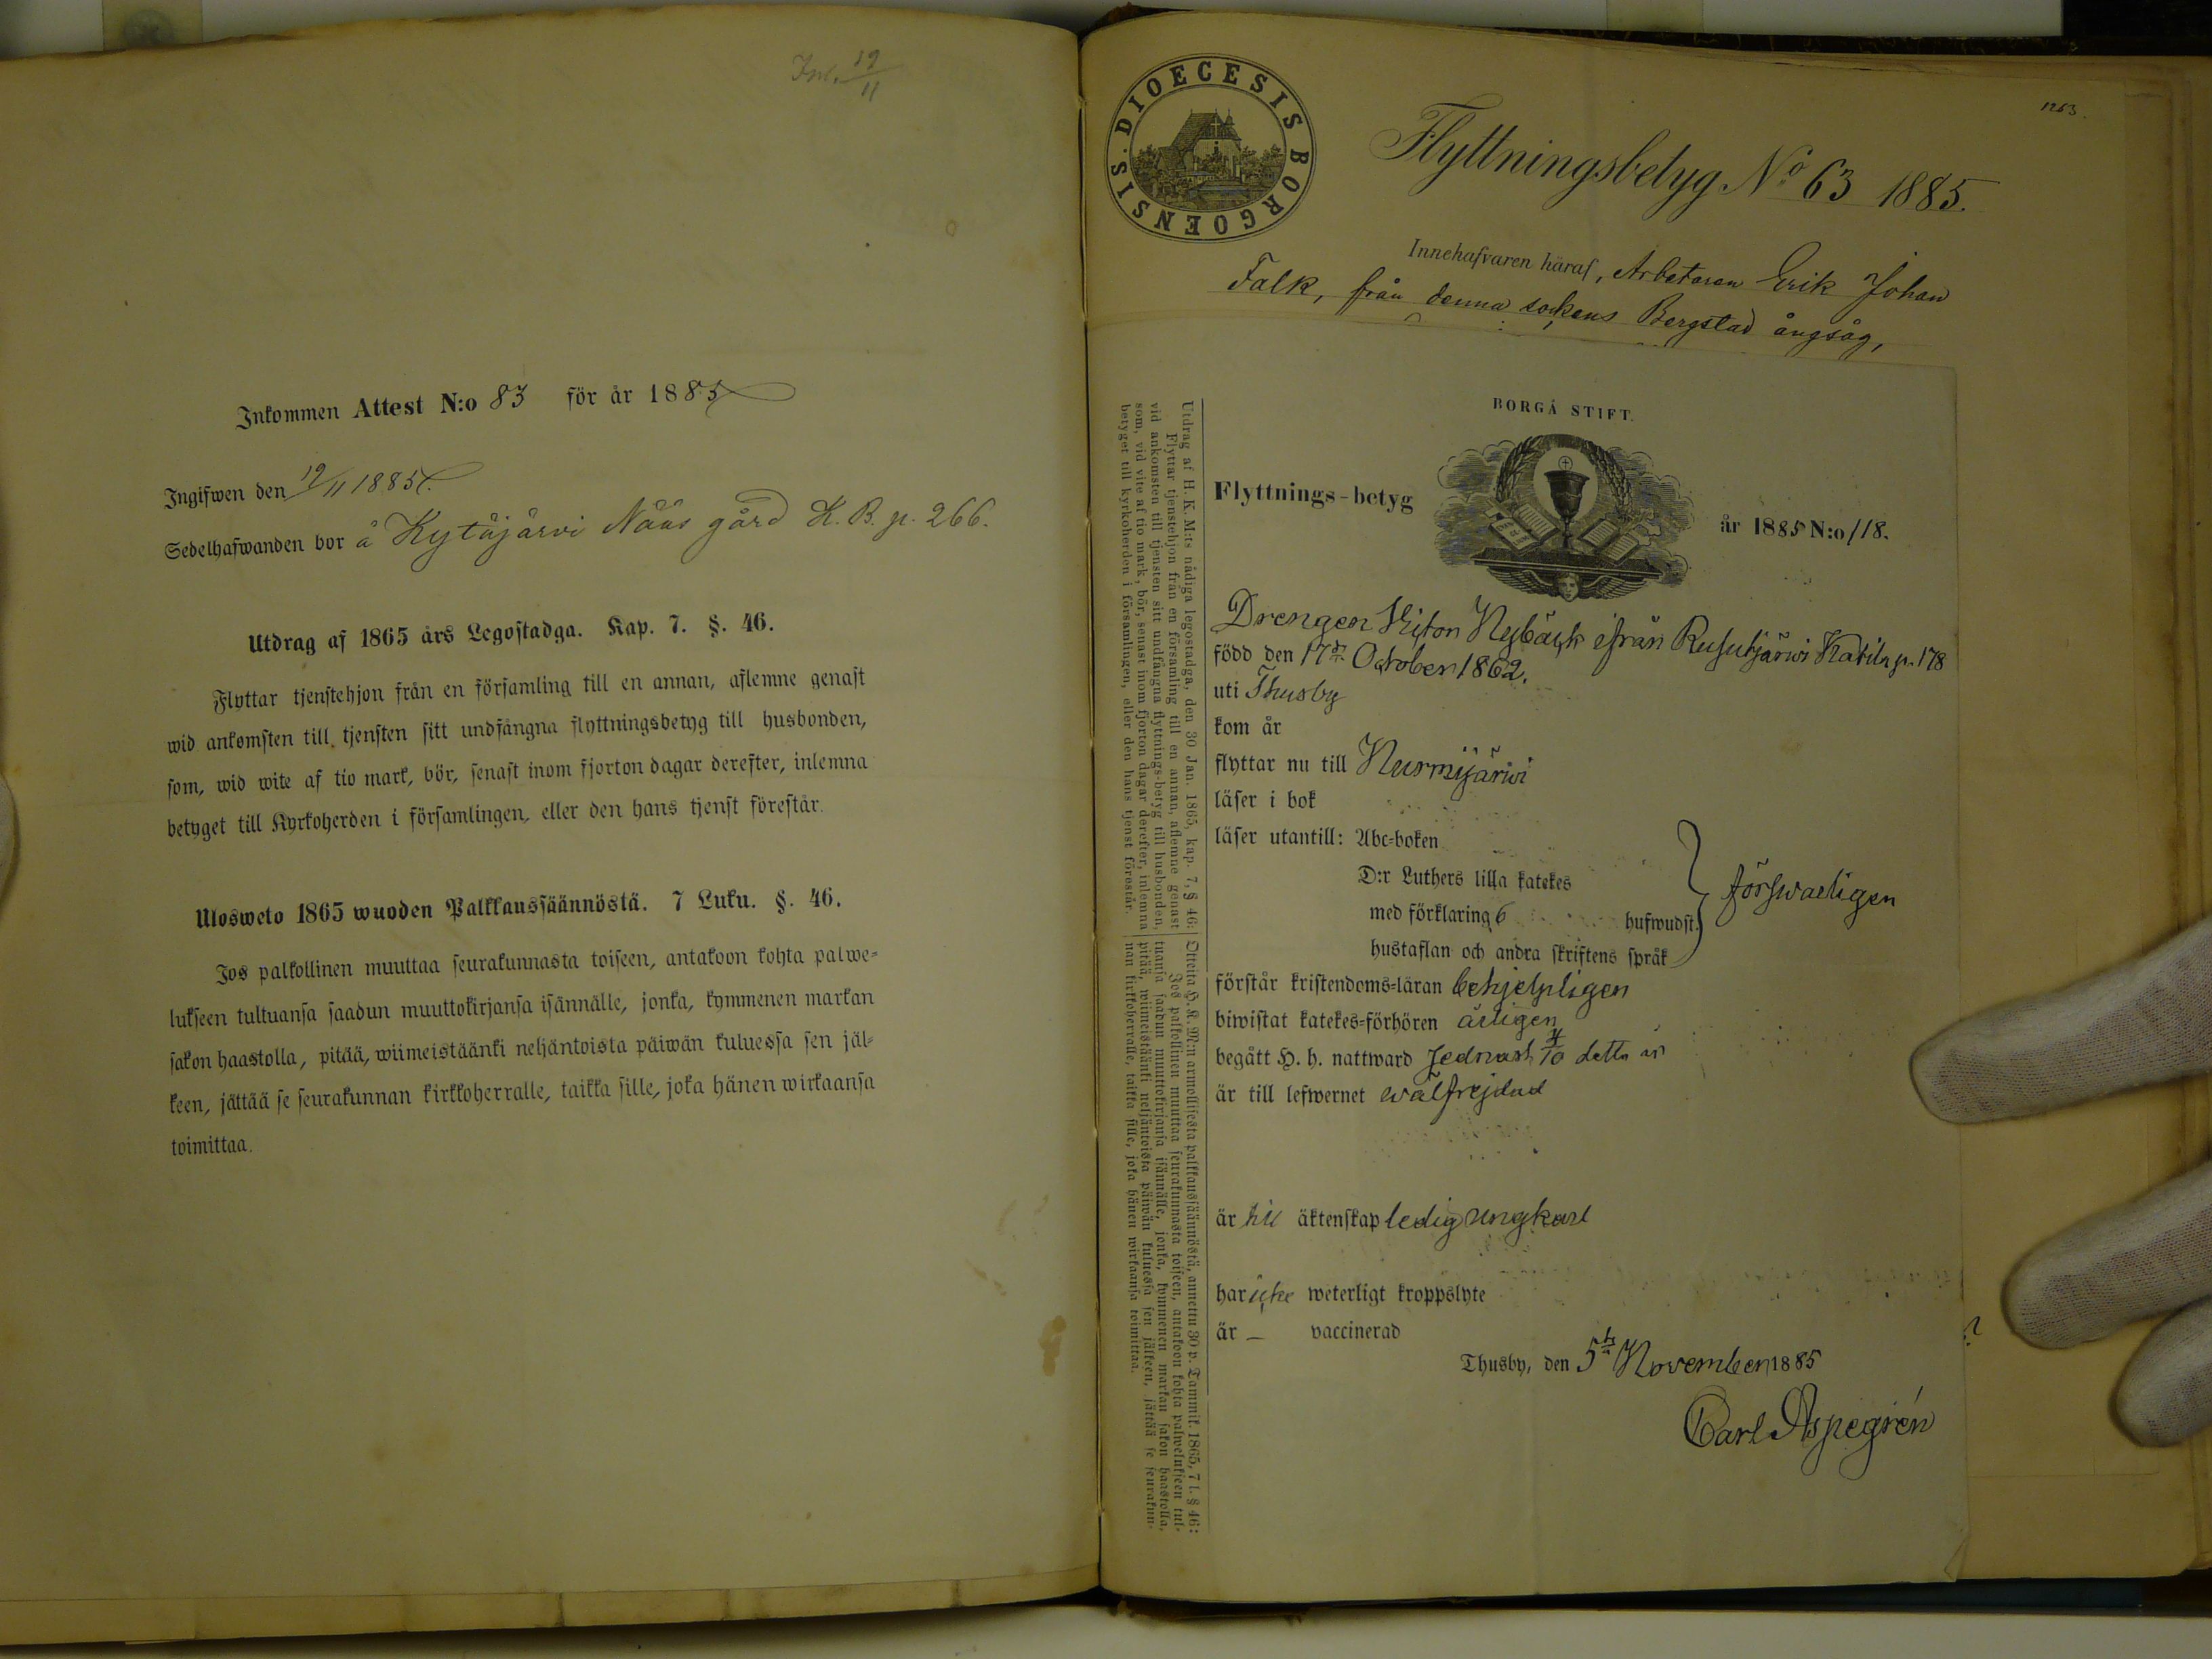 Ink. 19/11
Inkommen Attest N:o 83 för år 1885
Ingifwen den 19/11 1885.
Sedelhafwanden bor å Kytäjärvi Nääs gård K. B. p. 266.
Utdrag af 1865 års Legostadga. Kap. 7. §. 46.
Flyttar tjenstehjon från en församling till en annan, aflemne genast
wid ankomsten till tjensten sitt undfångna flyttningsbetyg till husbonden,
som, wid wite af tio mark, bör, senast inom fjorton dagar derefter, inlemna
betyget till Kyrkoherden i församlingen, eller den hans tjenst förestår.
Ulosweto 1865 wuoden Palkkaussäännöstä. 7 Luku. §. 46.
Jos palkollinen muuttaa seurakunnasta toiseen, antakoon kohta palwe-
lukseen tultuansa saadun muuttokirjansa isännälle, jonka, kymmenen markan
sakon haastolla, pitää, wiimeistäänki neljäntoista päiwän kuluessa sen jäl-
keen, jättää se seurakunnan kirkkoherralle, taikka sille, joka hänen wirkaansa
toimittaa.
1263.
DIOECESIS BORGOENSIS.
Flyttningsbetyg No 63 1885.
Innehafvaren häraf, Arbetaren Erik Johan
Falk, från denna sockens Bergstad ångsåg,
BORGÅ STIFT.
Flyttnings-betyg
år 1885 N:o 118.
Drengen Nybäck ifrån Rusutjärwi Katila p. 178
född den 17de October 1862.
uti Thusby
kom år
flyttar nu till Nurmijärwi
läser i bok
läser utantill: Abc-boken
D:r Luthers lilla katekes
med förklaring 6 hufwudst.
hustaflan och andra skriftens språk
förswarligen
förstår kristendoms-läran behjelpligen
biwistat katekes-förhören årligen
begått H. h. nattward sednast 4/10 detta år
är till lefwernet wälfrejdad
är till äktenskap ledig ungkarl
har icke weterligt kroppslyte
är — vaccinerad
Thusby, den 5te November 1885
Carl Aspegrén
Utdrag af H. K. M:ts nådiga legostadga, den 30 Jan. 1865, kap. 7, § 46:
Flyttar tjenstehjon från en församling till en annan, aflemne genast
vid ankomsten till tjensten sitt undfångna flyttnings-betyg till husbonden,
som, vid vite af tio mark, bör, senast inom fjorton dagar derefter, inlemna
betyget till kyrkoherden i församlingen, eller den hans tjenst förestår.
Otteita H. K. M:n armollisesta palkkaussäännöstä, annettu 30 p. Tammik. 1865, 7 l. § 46:
Jos palkollinen muuttaa seurakunnasta toiseen, antakoon kohta palwelukseen tul-
tuansa saadun muuttokirjansa isännälle, jonka, kymmenen markan sakon haastolla,
pitää, wiimeistäänki neljäntoista päiwän kuluessa sen jälkeen, jättää se seurakun-
nan kirkkoherralle, taikka sille, joka hänen wirkaansa toimittaa.